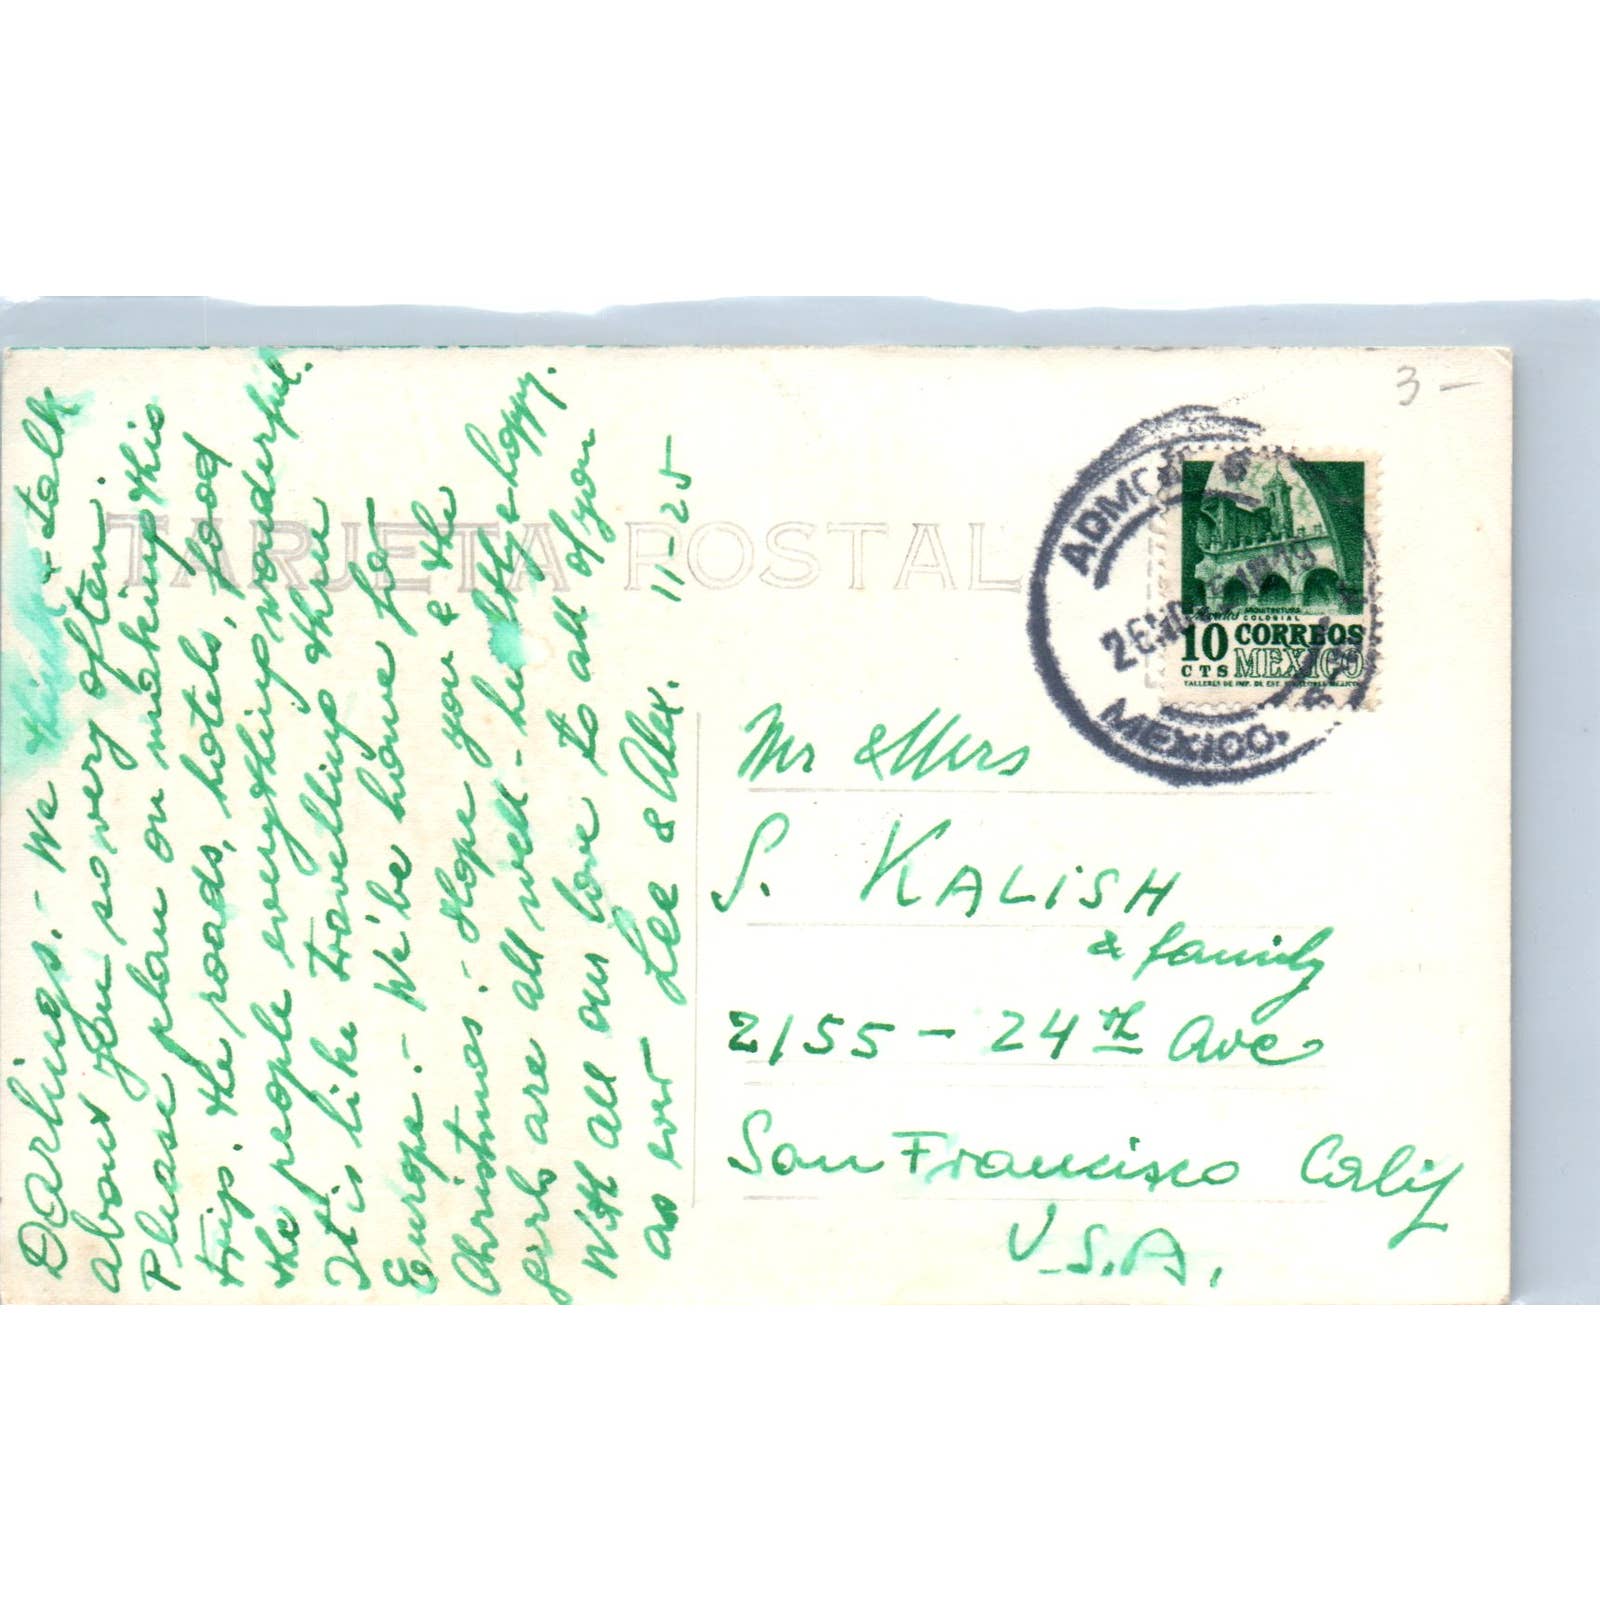 Darlings. - We think & talk
about you so very often.
Please plan on making this
trip. The roads, hotels, food
the people everything wonderful.
It is like travelling thru
Europe. - We'll be home for
Christmas. - Hope you & the
girls are all well - healthy & happy.
With all our love to all of you
as ever Lee & Alex. 11-25
TARJETA POSTAL
3 -
ADMON
26 NOV
MEXICO.
ARQUITECTURA
COLONIAL
10 CORREOS
CTS MEXICO
TALLERES DE IMP. DE EST. Y VALORES MEXICO
Mr & Mrs
S. KALISH
& family
2155 - 24th Ave
San Francisco Calif
U.S.A.